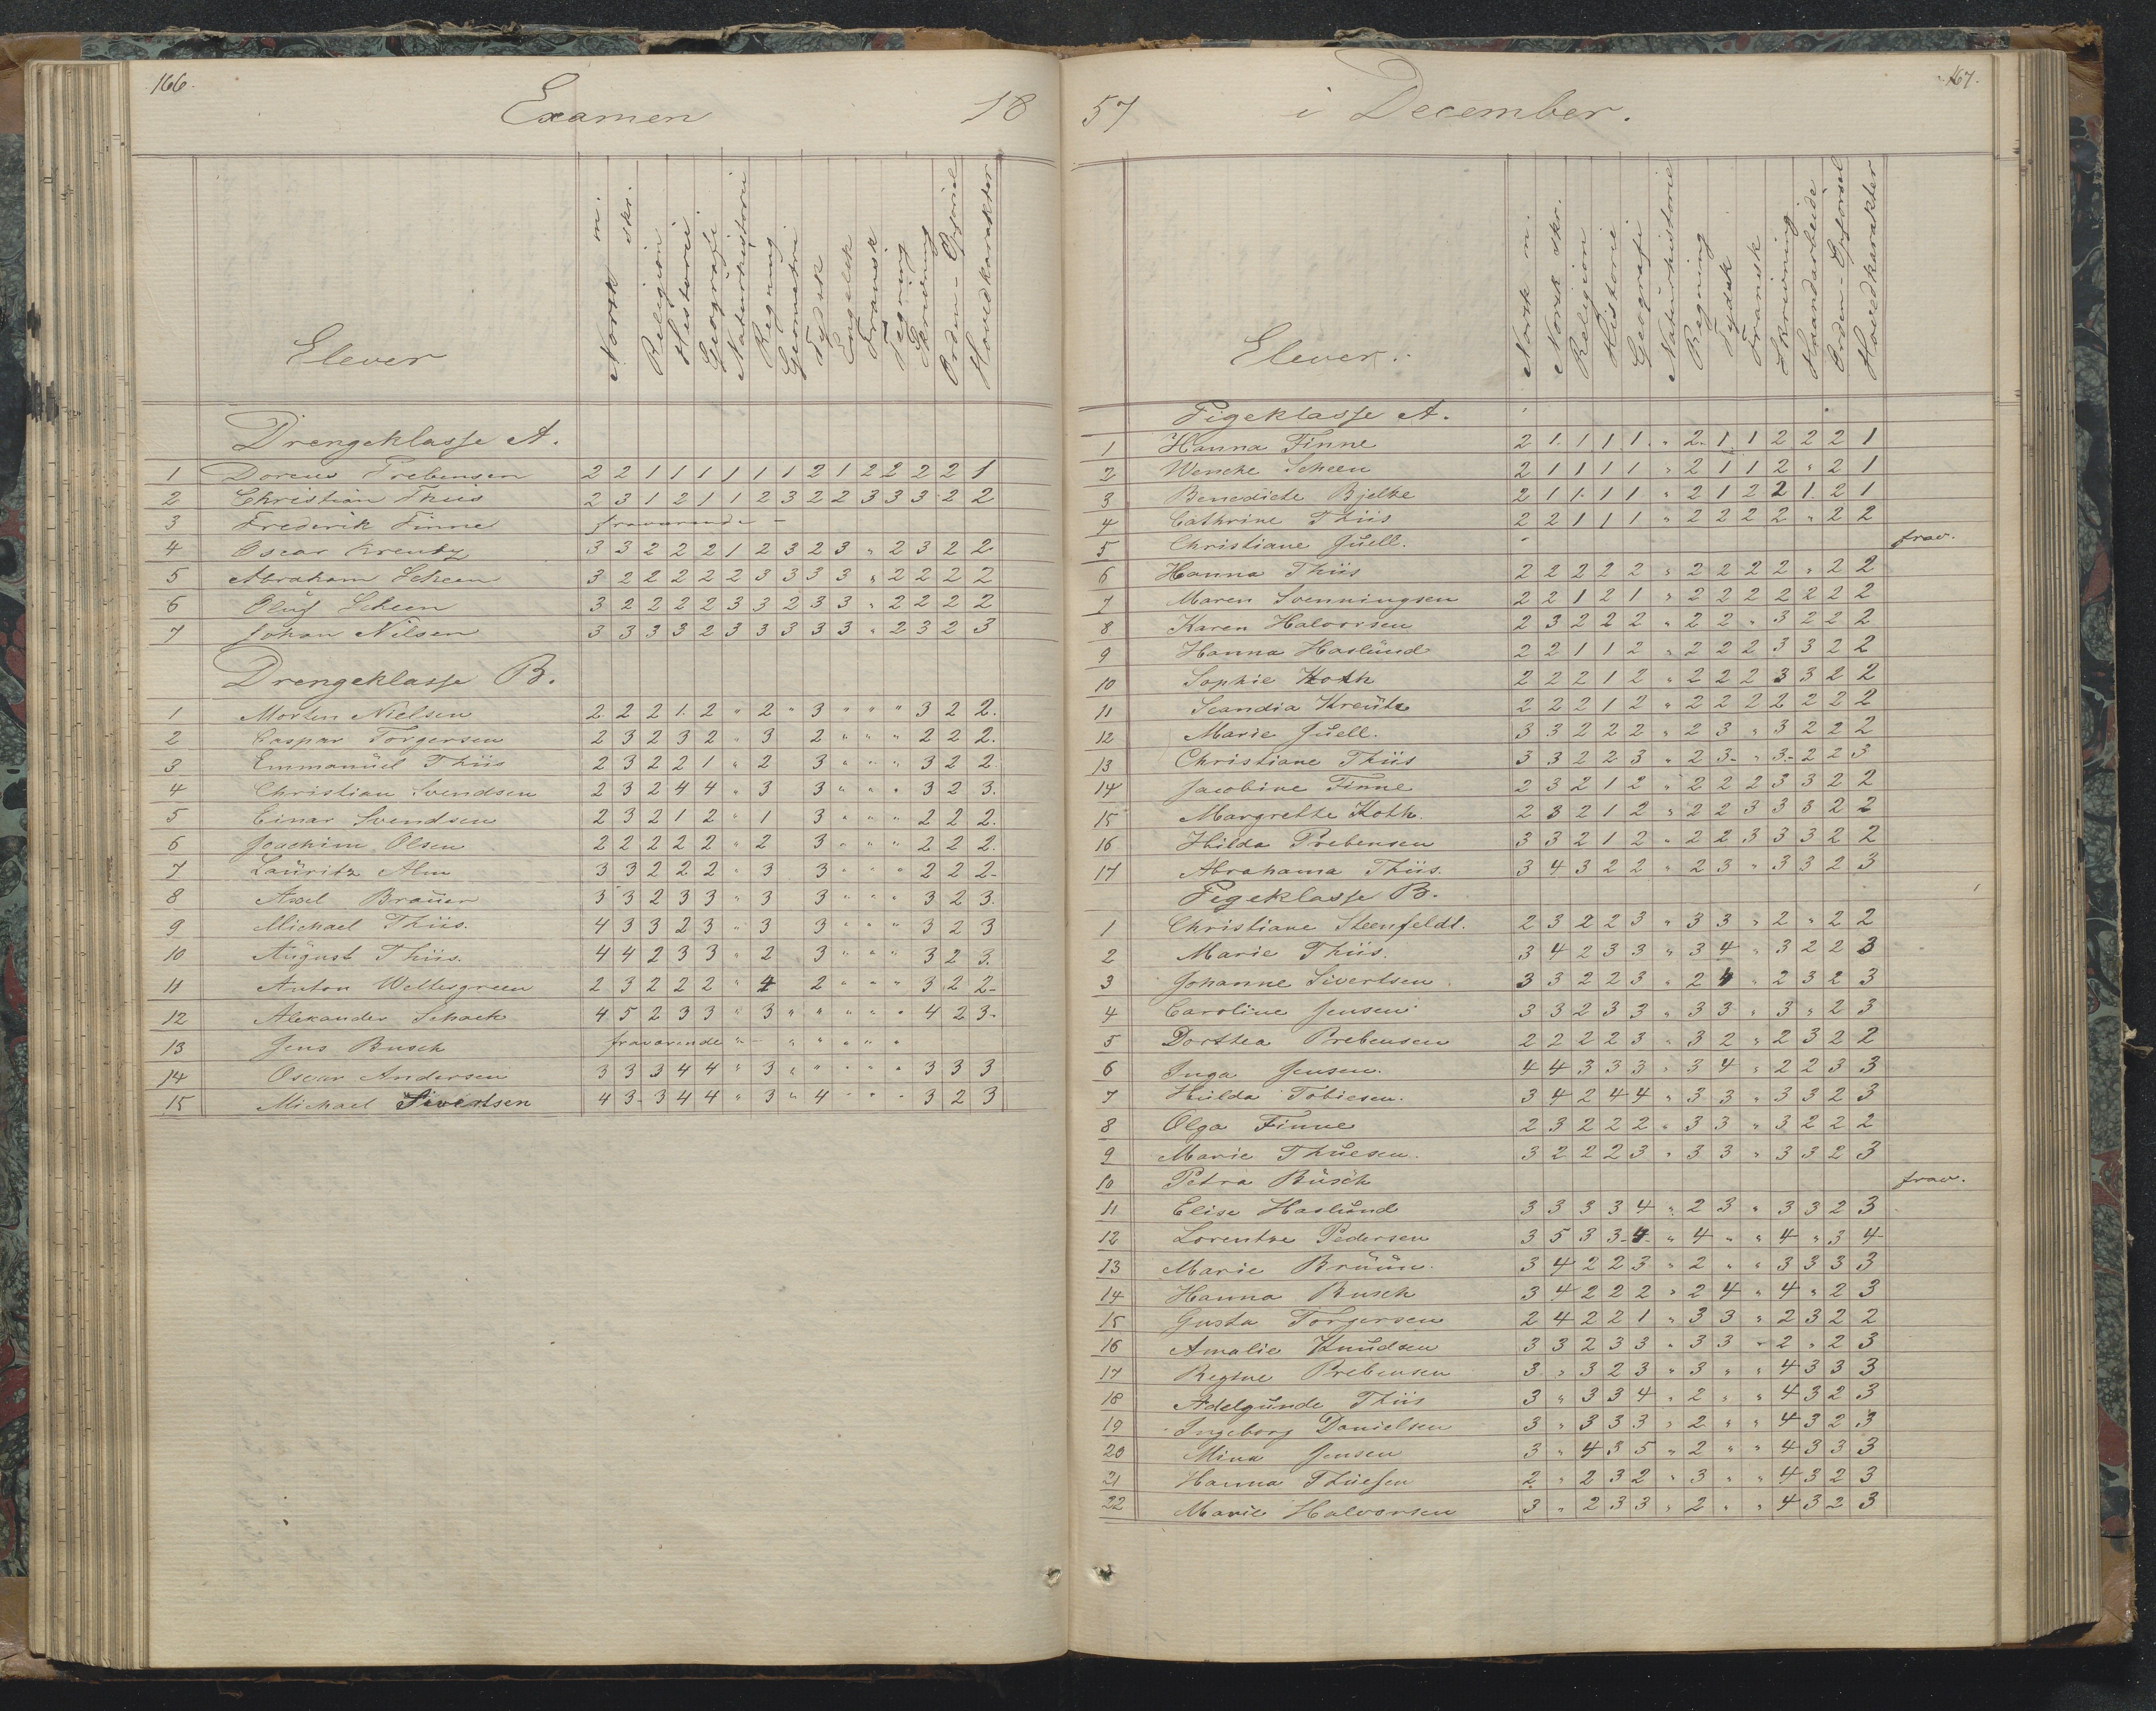 166.
Examen 18
Elever
Norsk m.
skr.
Religion
Historie
Geografi
Naturhistorie
Regning
Geometri
Tydsk
Engelsk
Fransk
Tegning
Skrivning
Orden - Opførsel
Hovedkarakter
Drengeklasse A.
1 Prebensen 2 2 1 1 1 1 1 1 2 1 2 2 2 2 1
2 Christian Thiis 2 3 1 2 1 1 2 3 2 2 3 3 3 2 2
3 Frederik Finne fraværende -
4 Oscar Kreutz 3 3 2 2 2 1 2 3 2 3 " 2 3 2 2
5 Abraham Scheen 3 2 2 2 2 2 3 3 3 3 " 2 2 2 2
6 Oluf Scheen 3 2 2 2 2 3 3 2 3 3 " 2 2 2 2
7 Johan Nilsen 3 3 3 3 2 3 3 3 3 3 " 2 3 2 3
Drengeklasse B.
1 Morten Nielsen 2 2 2 1. 2 " 2 " 3 " " " 3 2 2.
2 Caspar Torgersen 2 3 2 3 2 " 3 2 " " " 2 2 2.
3 Emmanuel Thiis 2 3 2 2 1 " 2 3 " " " 3 2 2
4 Christian Svendsen 2 3 2 4 4 " 3 3 " " " 3 2 3.
5 Einar Svendsen 2 3 2 1 2 " 1 3 " " " 2 2 2.
6 Joachim Olsen 2 2 2 2 2 " 2 3 " " " 2 2 2.
7 Lauritz Alm 3 3 2 2 2 " 3 3 " " " 2 2 2-
8 Axel Brauer 3 3 2 3 3 " 3 3 " " " 3 2 3.
9 Michael Thiis. 4 3 3 2 3 " 3 3 " " " 3 2 3
10 August Thiis. 4 4 2 3 3 " 2 3 " " " 3 2 3.
11 Anton Weltzgreen 2 3 2 2 2 " 4 2 " " " 3 2 2-
12 Alexander Schack 4 5 2 3 3 " 3 " " " " " 4 2 3-
13 Jens Busch fraværende " - " " " " "
14 Oscar Andersen 3 3 3 4 4 " 3 " " " " " 3 3 3
15 Michael Sivertsen 4 3- 3 4 4 " 3 " 4 " " " 3 2 3
167.
57 i December.
Elever.
Norsk m.
Norsk skr.
Religion
Historie
Geografi
Naturhistorie
Regning
Tydsk
Fransk
Skrivning
Haandarbeide
Orden - Opførsel
Hovedkarakter
Pigeklasse A.
1 Hanna Finne 2 1. 1 1 1. " 2. 1 1 2 2 2 1
2 Wencke Scheen 2 1 1 1 1 " 2 1 1 2 " 2 1
3 Benedicte Bjelke 2 1 1. 1 1 " 2 1 2 2 1. 2 1
4 Cathrine Thiis 2 2 1 1 1 " 2 2 2 2 " 2 2
5 Christiane Juell. frav.
6 Hanna Thiis 2 2 2 2 2 " 2 2 2 2 " 2 2
7 Maren Svenningsen 2 2 1 2 1 " 2 2 2 2 2 2 2
8 Karen Halvorsen 2 3 2 2 2 " 2 2 " 3 2 2 2
9 Hanna Haslund 2 2 1 1 2 " 2 2 2 3 3 2 2
10 Sophie Koth 2 2 2 1 2 " 2 2 2 3 3 2 2
11 Scandia Kreutz 2 2 2 1 2 " 2 2 2 2 2 2 2
12 Marie Juell. 3 3 2 2 2 " 2 3 " 3 2 2 2
13 Christiane Thiis 3 3 2 2 3 " 2 3- " 3- 2 2 3
14 Jacobine Finne 2 3 2 1 2 " 2 2 2 3 3 2 2
15 Margrethe Koth. 2 3 2 1 2 " 2 2 3 3 3 2 2
16 Hilda Prebensen 3 3 2 1 2 " 2 2 3 3 3 2 2
17 Abrahama Thiis. 3 4 3 2 2 " 2 3 " 3 3 2 3
Pigeklasse B.
1 Christiane Steenfeldt. 2 3 2 2 3 " 3 3 " 2 " 2 2
2 Marie Thiis. 3 4 2 3 3 " 3 4 " 3 2 2 3
3 Johanne Sivertsen 3 3 2 2 3 " 2 4 " 2 3 2 3
4 Caroline Jensen 3 3 2 3 3 " 3 3 " 3 " 2 3
5 Dorthea Prebensen 2 2 2 2 3 " 3 2 " 2 3 2 2
6 Inga Jensen. 4 4 3 3 3 " 3 4 " 2 2 3 3
7 Hulda Tobiesen. 3 4 2 4 4 " 3 3 " 3 3 2 3
8 Olga Finne 2 3 2 2 2 " 3 3 " 3 2 2 2
9 Marie Thuesen. 3 2 2 2 3 " 3 3 " 3 3 2 3
10 Petra Busch frav.
11 Elise Haslund 3 3 3 3 4 " 2 3 " 3 3 2 3
12 Lorentze Pedersen 3 5 3 3- 4- " 4 " " 4 " 3 4-
13 Marie Bruun. 3 4 2 2 3 " 2 " " 3 3 3 3
14 Hanna Busch 3 4 2 2 2 " 2 4 " 4 " 2 3
15 Gusta Torgersen 2 4 2 2 1 " 3 3 " 2 3 2 2
16 Amalie Knudsen 3 3 2 3 3 " 3 3 " 2 " 2 3
17 Regine Prebensen 3 " 3 2 3 " 3 " " 4 3 3 3
18 Adelgunde Thiis 3 " 3 3 4 " 2 " " 4 3 2 3
19 Ingeborg Danielsen 3 " 3 3 3 " 2 " " 4 3 2 3
20 Mina Jensen 3 " 4 3 5 " 2 " " 4 3 3 3
21 Hanna Thuesen 2 " 2 3 2 " 3 " " 4 3 2 3
22 Marie Halvorsen 3 " 2 3 3 " 2 " " 4 3 2 3